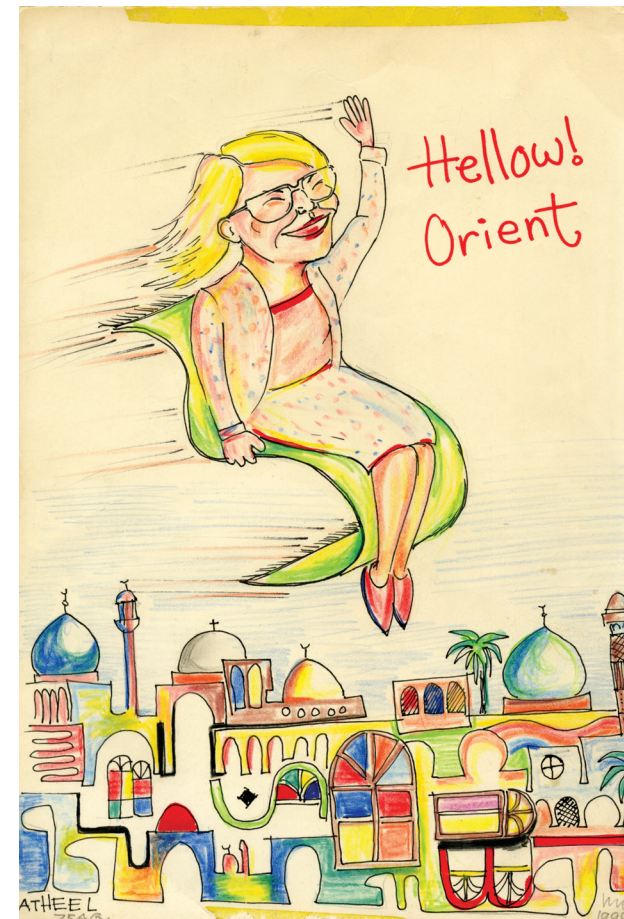 Hellow!
Orient
ATHEEL